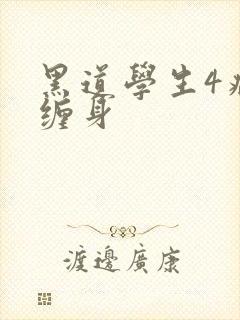 黑道學生4
缠身
渡邊廣康